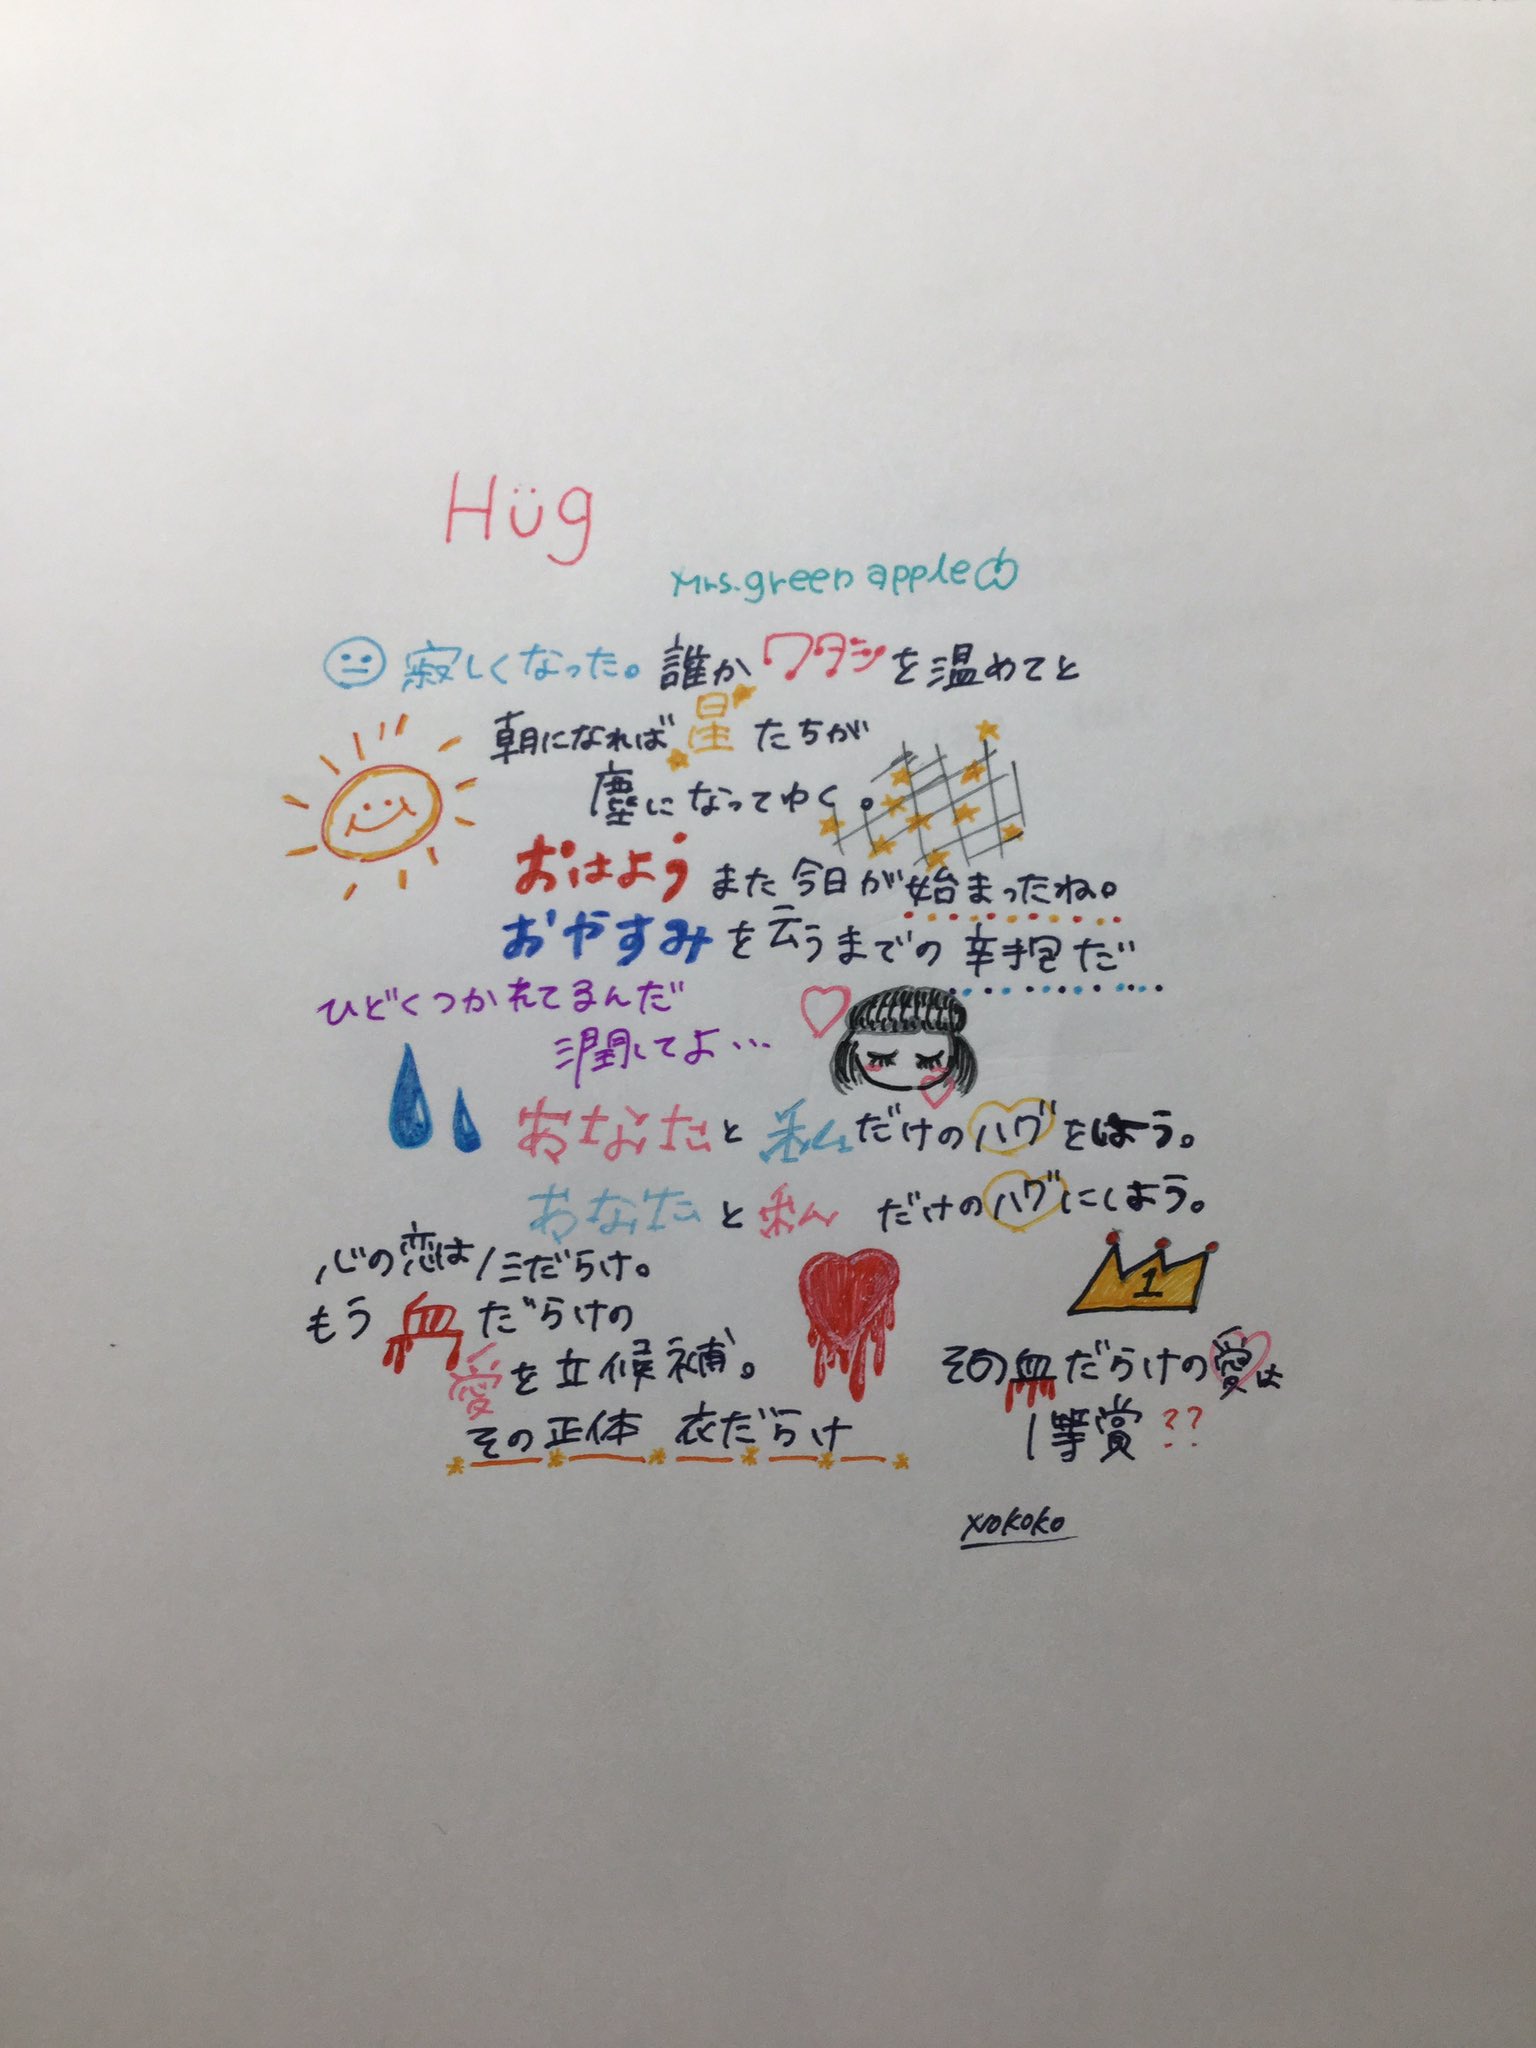 Hüg
Mrs.green apple
寂しくなった。誰かワタシを温めてと
朝になれば星たちが
塵になってゆく。
おはようまた今日が始まったね。
おやすみを云うまでの辛抱だ
ひどくつかれてるんだ
潤してよ…
あなたと私だけのハグをほう。
あなたと私だけのハグにしよう。
心の恋は仁だらけ。
もう血だらけの
愛を立候補。
その正体 衣だらけ
1
その血だらけの愛は
1等賞??